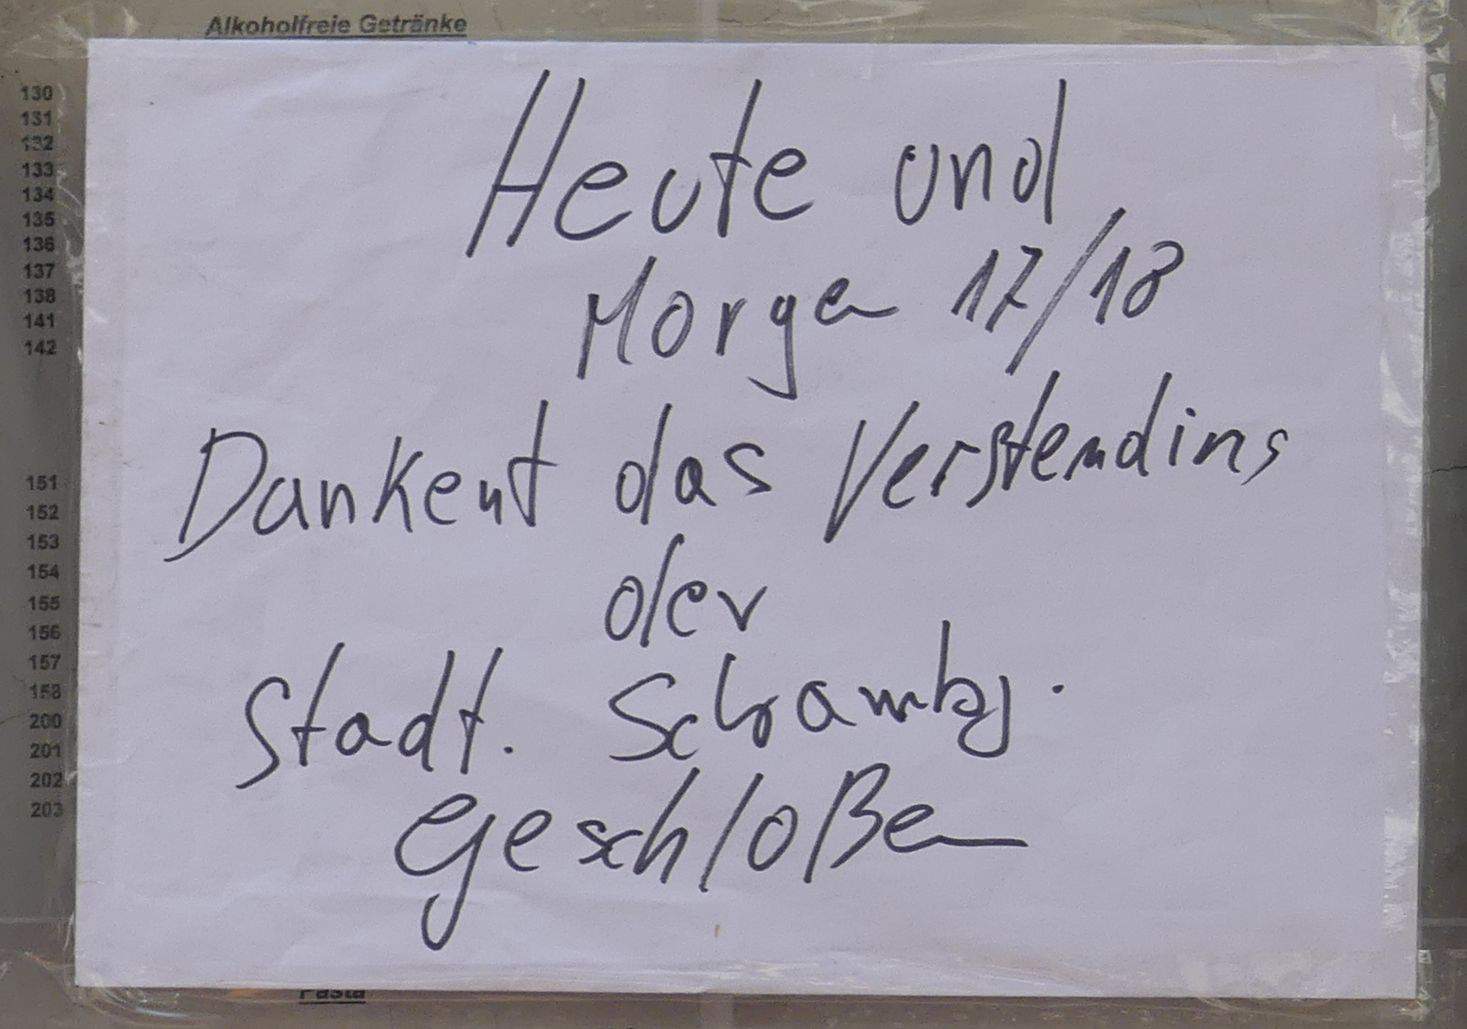 Alkoholfreie Getränke
130
131
132
133
134
135
136
137
138
141
142
151
152
153
154
155
156
157
158
200
201
202
203
Heute und
Morgen 17/18
Dankent das Verstendins
der
Stadt. Schrambg.
geschloßen
Pasta